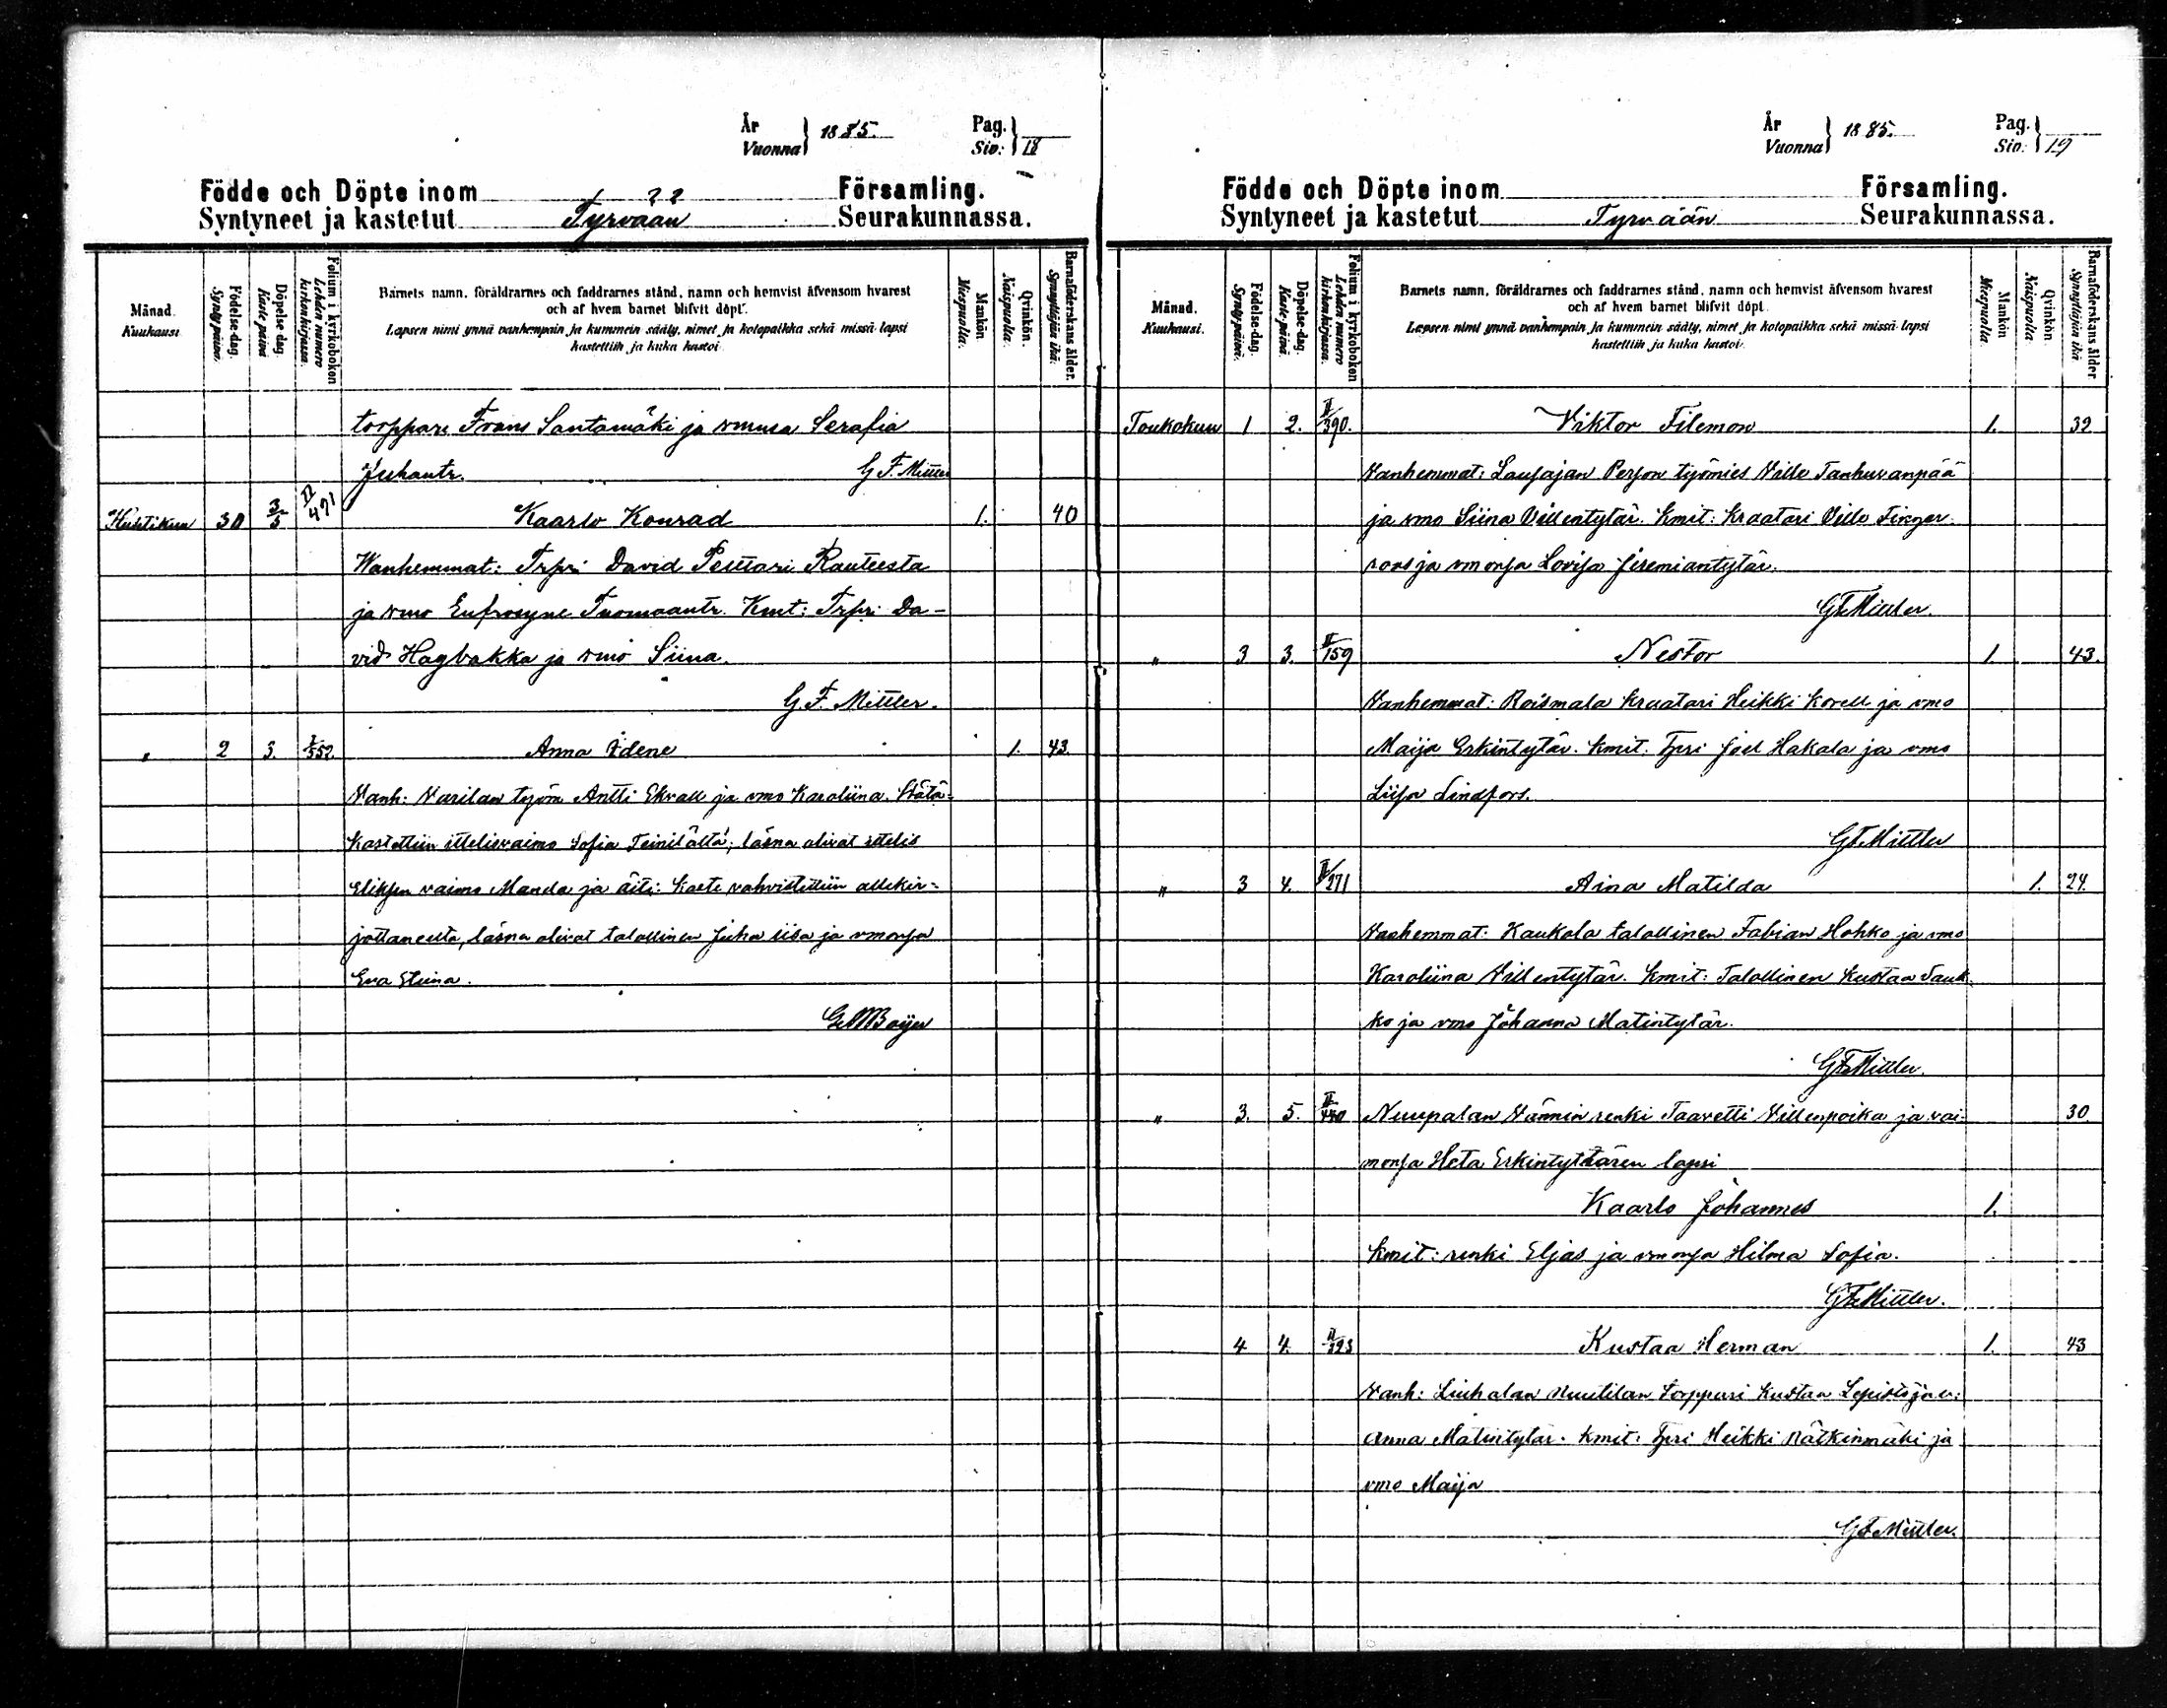 År
Vuonna } 1885.
Pag.
Siv: } 18
Födde och Döpte inom Församling.
Syntyneet ja kastetut Tyrvään Seurakunnassa.
Månad. Kuukausi
Födelse-dag. Synty-päivä.
Döpelse-dag. Kaste-päivä
Folium i kyrkoboken Lehden numero kirkonkirjassa.
Barnets namn, föräldrarnes och faddrarnes stånd, namn och hemvist äfvensom hvarest
och af hvem barnet blifvit döpt.
Lapsen nimi ynnä vanhempain ja kummein sääty, nimet ja kotopaikka sekä missä lapsi
kastettiin ja kuka kastoi.
Mankön Miespuolta.
Qvinkön. Naispuolta.
Barnaföderskans ålder. Synnyttäjän ikä.
torppari Frans Santamäki ja vmnsa Serafia
Juhantr. G. F. Mittler
Huhtikuu 30 3/5 II/491 Kaarlo Konrad 1. 40
Wanhemmat: Trpri David Pettari Rauteesta
ja vmo Eufrosyne Tuomaantr. Kmt: Trpr. Da-
vid Hagbakka ja vmo Siina.
G. F. Mittler.
" 2 3. I/552. Anna Edene 1. 43.
Vanh: Varilan työm Antti Ekvall ja vmo Karoliina. Hätä-
kastettiin ittelisvaimo Sofia Teinilältä; läsna olivat ittelis
Eliksen vaimo Manda ja äiti: kaste vahvistettiin allekir-
jottaneelta, läsna olivat talollinen Juha Iisa ja vmonsa
Eva Stiina.
År
Vuonna } 1885.
Pag.
Siv: } 19
Födde och Döpte inom Församling.
Syntyneet ja kastetut Tyrvään Seurakunnassa.
Månad. Kuukausi.
Födelse-dag. Synty-päivä.
Döpelse-dag. Kaste-päivä.
Folium i kyrkoboken Lehden numero kirkonkirjassa.
Barnets namn, föräldrarnes och faddrarnes stånd, namn och hemvist äfvensom hvarest
och af hvem barnet blifvit döpt.
Lapsen nimi ynnä vanhempain ja kummein sääty, nimet ja kotopaikka sekä missä lapsi
kastettiin ja kuka kastoi.
Mankön Miespuolta.
Qvinkön. Naispuolta
Barnaföderskans ålder Synnyttäjän ikä
Toukokuu 1 2. II/390. Viktor Filemon 1. 39
Vanhemmat: Lausajan Person työmies Ville Tanhuvanpää
ja vmo Siina Villentytär. Kmit: Kraatari Ville Finger-
roos ja vmonsa Lovisa Jeremiantytär.
GFMittler.
" 3 3. II/159 Nestor 1. 43.
Vanhemmat: Roismala Kraatari Heikki Korell ja vmo
Maija Erkintytär. Kmit: Tpri Joel Hakala ja vmo
Liisa Lindfors.
GFMittler
" 3 4. II/271 Aina Matilda 1. 24.
Vanhemmat: Kaukola talollinen Fabian Hohko ja vmo
Karoliina Villentytär. Kmit: Talollinen Kustaa Sauk-
ko ja vmo Johanna Matintytär.
GFMittler.
" 3. 5. II/450 Nuupalan Vännin renki Taavetti Villenpoika ja vai- 30.
monsa Heta Erkintyttären lapsi
Kaarlo Johannes 1.
Kmit: renki Eljas ja vmonsa Hilma Sofia.
GFMittler.
4 4. II/393 Kustaa Herman 1. 43
Vanh: Liuhalan Nuutilan torppari Kustaa Lepistö ja v:
Anna Matintytär. Kmit: Tpri Heikki Nätkinmäki ja
vmo Maija
GFMittler.